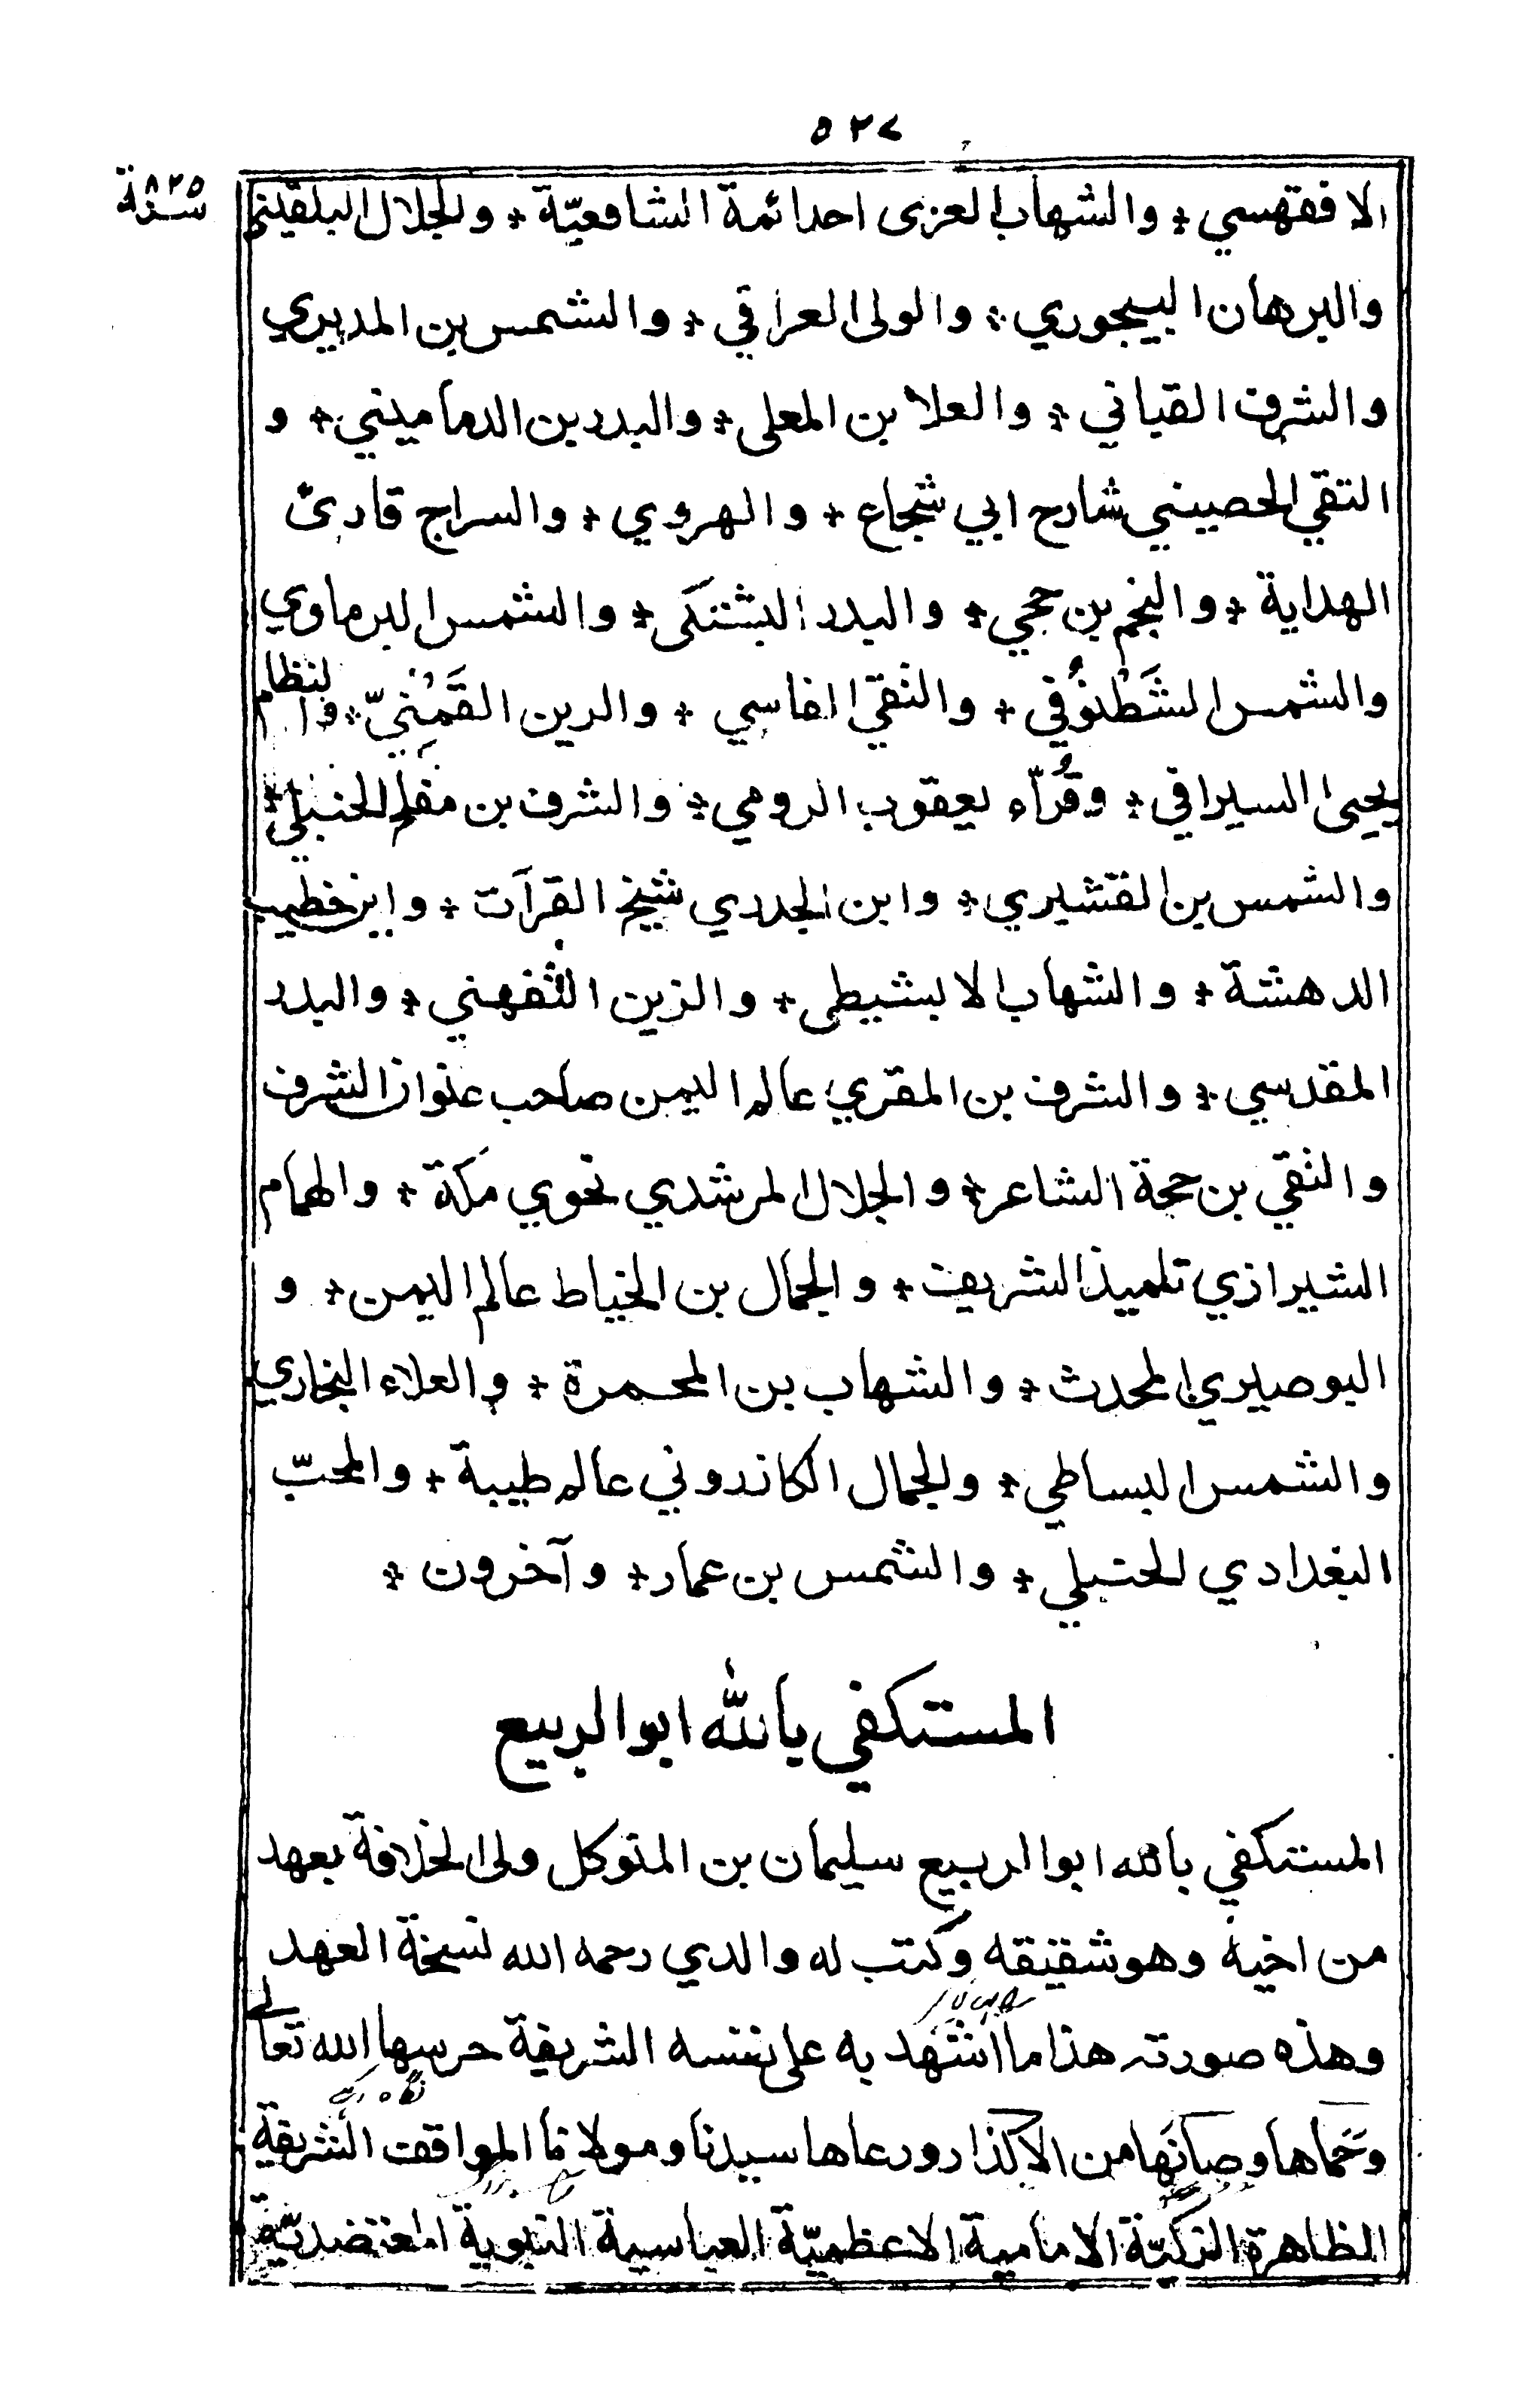 ٥٢٧
سنة ٨٢٥
الافقهسي * والشهاب الغزى احد ائمة الشافعيّة * والجلال البلقيني
والبرهان البيجوري * والولى العراقي * والشمس بن المديري
والشرف القباني * والعلا بن المعلى * والبدر بن الدماميني * و
التقي الحصيني شارح ابي شجاع * والهروي * والسراج قارئ
الهداية * والنجم بن حجي * والبدر البشتكى * والشمس البرماوي
والشمس الشَطْنُوفي * والتقي الفاسي * والدين القَمَنِيّ * والنظام
يحيى السيرافي * وقُرّاء يعقوب الرومي * والشرف بن مفلح الحنبلي *
والشمس بن القشيري * وابن الجدري شيخ القرآت * وابن خطيب
الدهشة * والشهاب الابشيطى * والزين التفهني * والبدر
المقدسي * والشرف بن المقري عالم اليمن صاحب عنوان الشرف
والتقي بن حجة الشاعر * والجلال المرشدي نحوي مكة * والهمام
الشيرازي تلميذ الشريف * والجمال بن الخياط عالم اليمن * و
البوصيري المحدث * والشهاب بن المحمرة * والعلاء البخاري
والشمس البساطي * والجمال الكازروني عالم طيبة * والمحبّ
البغدادي الحنبلي * والشمس بن عمار * وآخرون *
المستكفي بالله ابو الربيع
المستكفي بالله ابو الربيع سليمان بن المتوكل ولى الخلافة بعهد
من اخيه وهو شقيقه وكتب له والدي رحمه الله نسخة العهد
وهذه صورته هذا ما اشهد به على نفسه الشريفة حرسها الله تعالى
وحَماها وصانَها من الاكدار ورعاها سيدنا ومولانا المواقف الشريفة
الظاهرة الزكيّة الامامية الاعظميّة العباسية النبوية المعتضديّة